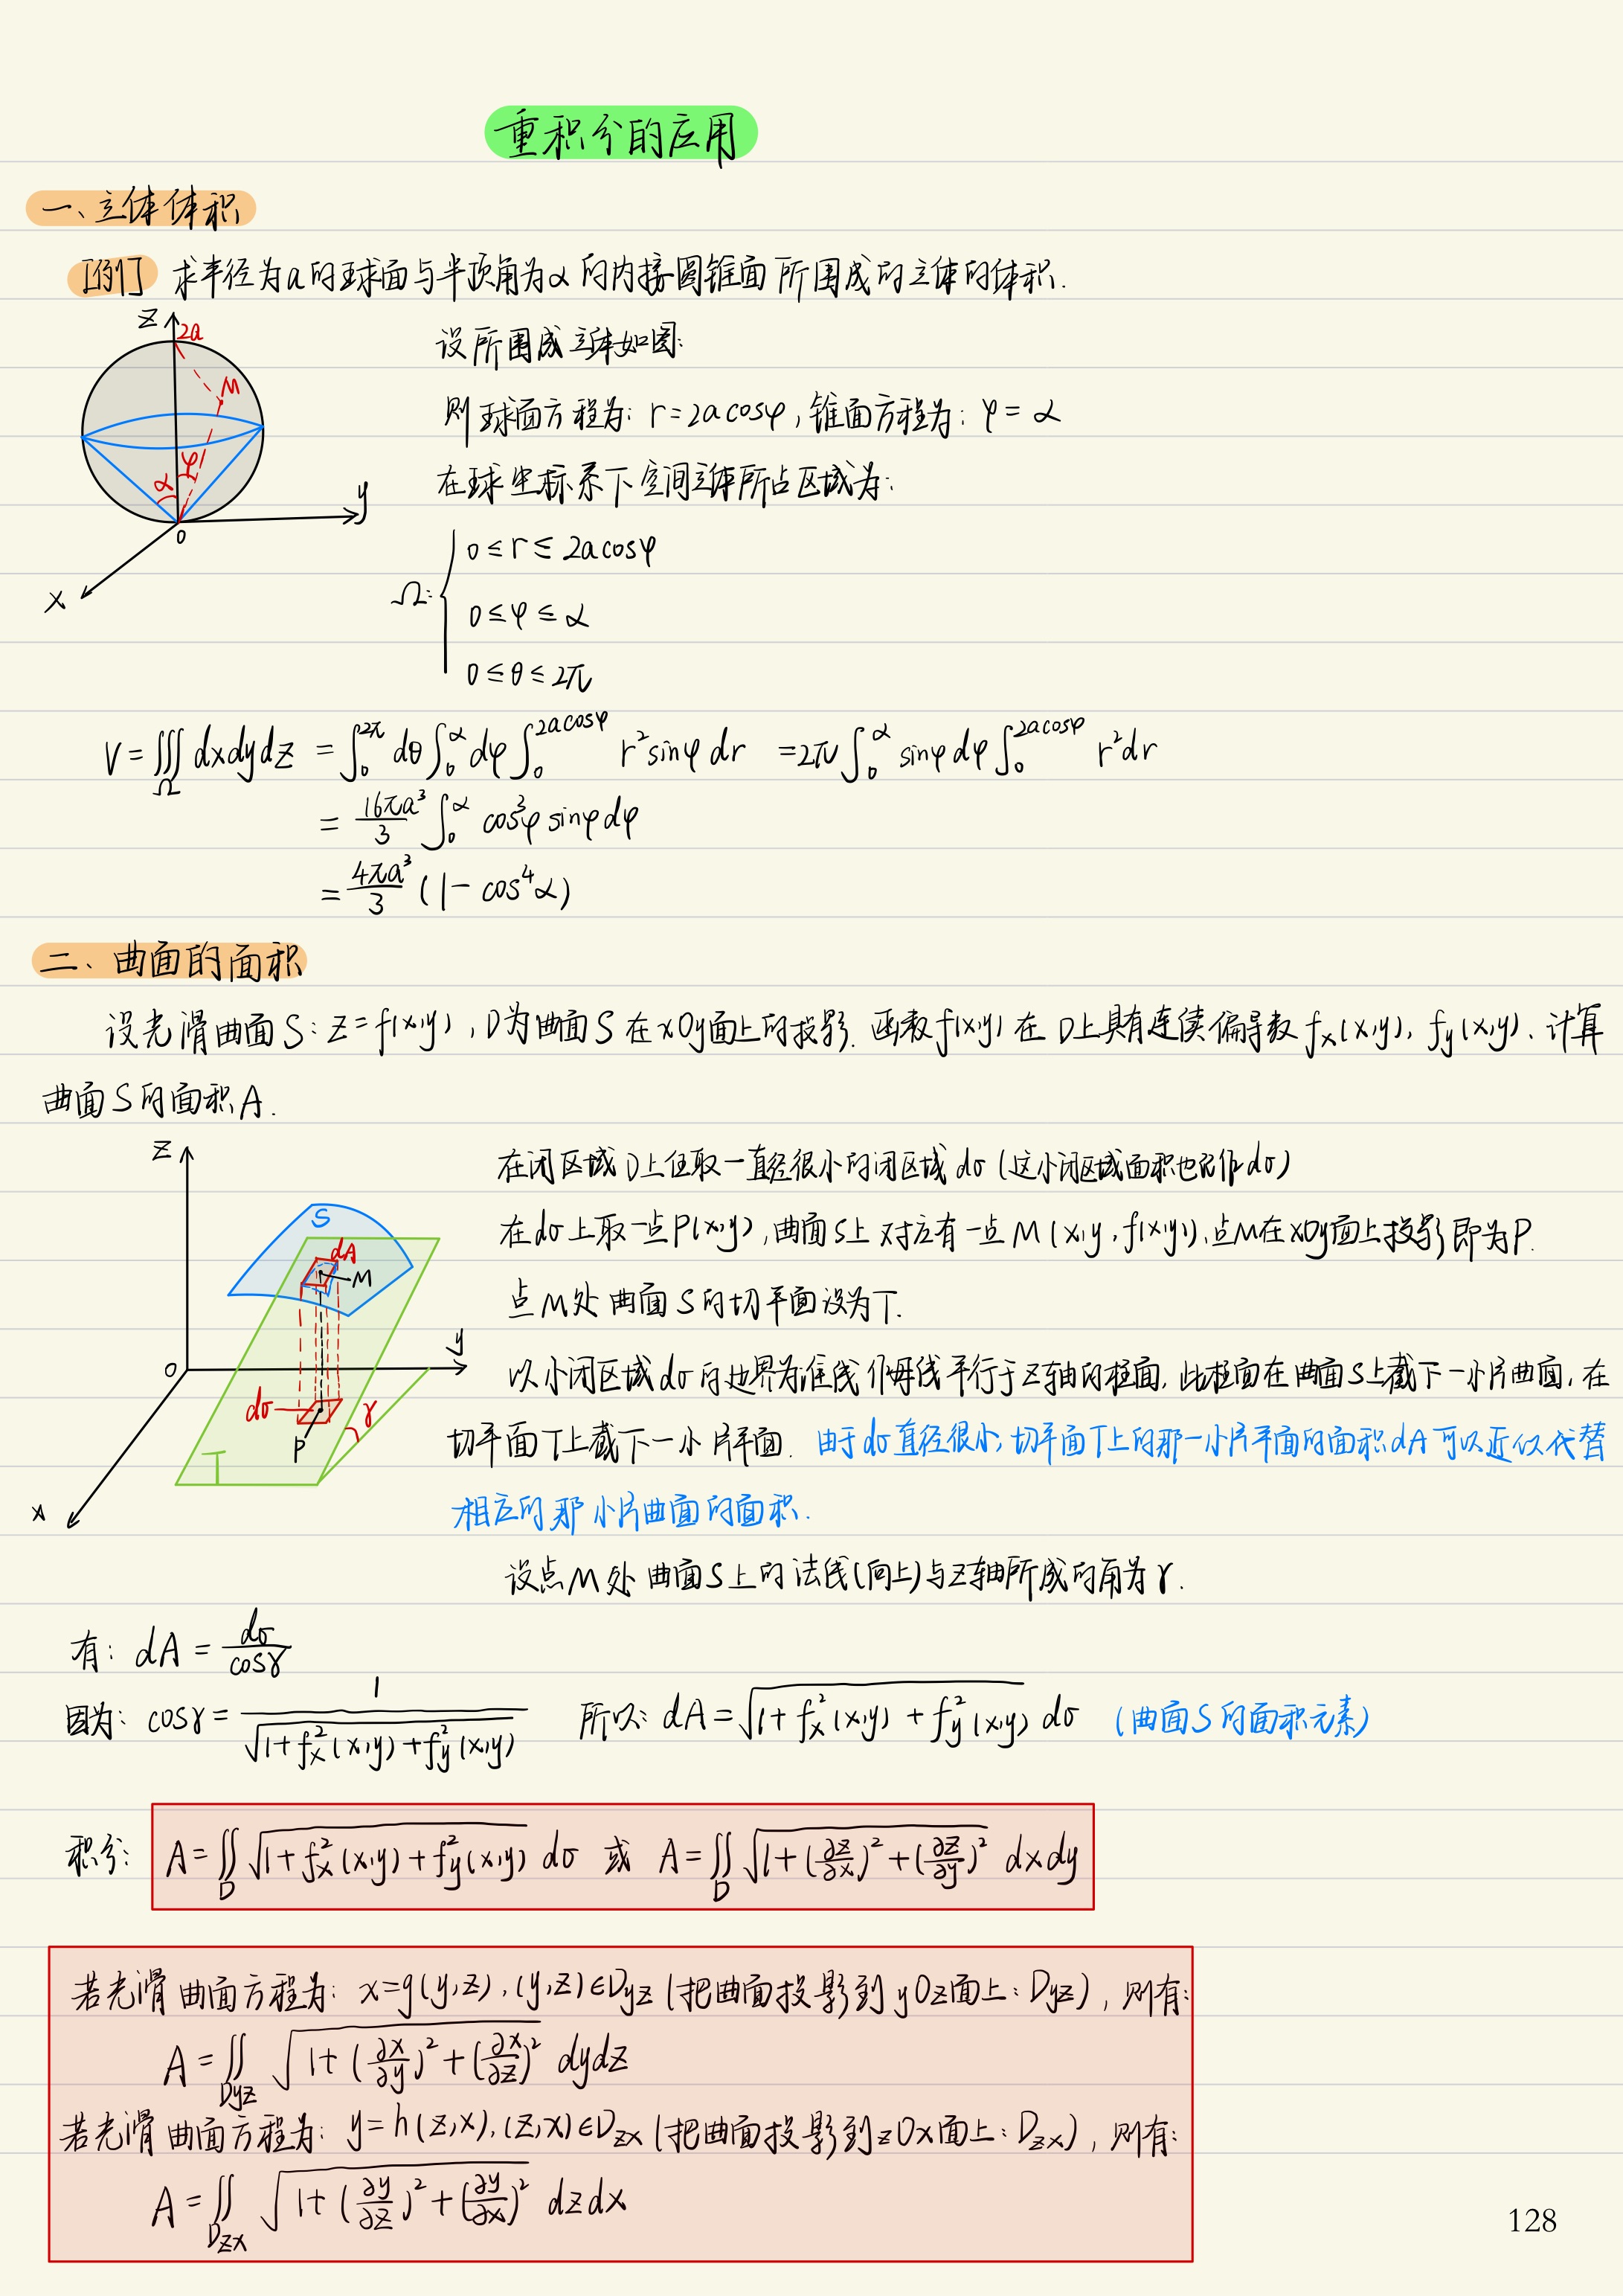 重积分的应用
一、立体体积
[例] 求半径为a的球面与半顶角为α的内接圆锥面所围成的立体的体积.
z
2a
M
α
φ
y
0
x
设所围成立体如图:
则球面方程为: r=2acosφ, 锥面方程为: φ=α
在球坐标系下空间立体所占区域为:
Ω: { 0≤r≤2acosφ
0≤φ≤α
0≤θ≤2π
V=∭_Ω dxdydz =∫_0^{2π}dθ∫_0^α dφ∫_0^{2acosφ} r²sinφ dr =2π∫_0^α sinφdφ∫_0^{2acosφ} r²dr
= 16πa³/3 ∫_0^α cos³φ sinφdφ
= 4πa³/3 (1-cos⁴α)
二、曲面的面积
设光滑曲面S: z=f(x,y), D为曲面S在xOy面上的投影. 函数f(x,y)在D上具有连续偏导数f_x(x,y), f_y(x,y). 计算
曲面S的面积A.
z
S
dA
M
y
0
dσ
γ
P
T
x
在闭区域D上任取一直径很小的闭区域dσ(这小闭区域面积也记作dσ)
在dσ上取一点P(x,y), 曲面S上对应有一点M(x,y,f(x,y)), 点M在xOy面上投影即为P.
点M处曲面S的切平面设为T.
以小闭区域dσ的边界为准线作母线平行于z轴的柱面, 此柱面在曲面S上截下一小片曲面, 在
切平面T上截下一小片平面. 由于dσ直径很小, 切平面T上的那一小片平面的面积dA可以近似代替
相应的那小片曲面的面积.
设点M处曲面S上的法线(向上)与z轴所成的角为γ.
有: dA= dσ/cosγ
因为: cosγ= 1/√(1+f_x²(x,y)+f_y²(x,y)) 所以: dA=√(1+f_x²(x,y)+f_y²(x,y)) dσ (曲面S的面积元素)
积分: A=∬_D √(1+f_x²(x,y)+f_y²(x,y)) dσ 或 A=∬_D √(1+(∂z/∂x)²+(∂z/∂y)²) dxdy
若光滑曲面方程为: x=g(y,z), (y,z)∈D_yz (把曲面投影到yOz面上: D_yz), 则有:
A=∬_{Dyz} √(1+(∂x/∂y)²+(∂x/∂z)²) dydz
若光滑曲面方程为: y=h(z,x), (z,x)∈D_zx (把曲面投影到zOx面上: D_zx), 则有:
A=∬_{Dzx} √(1+(∂y/∂z)²+(∂y/∂x)²) dzdx
128